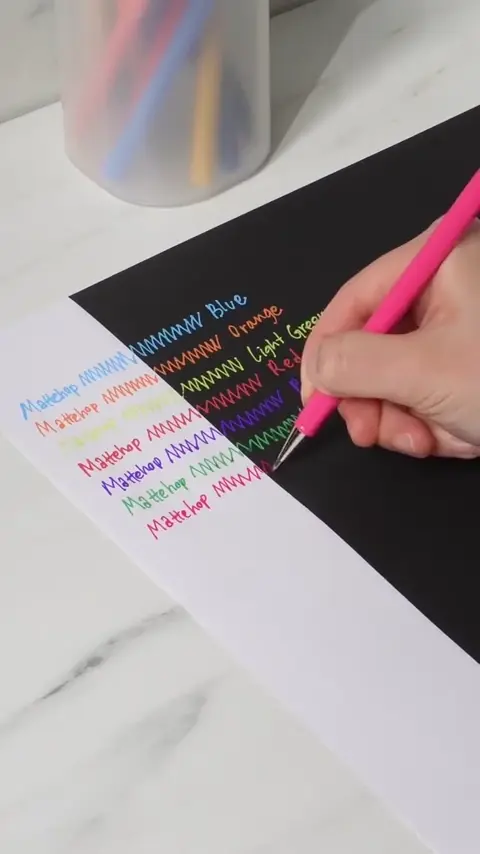 Mattehop Blue
Mattehop Orange
Mattehop Light Green
Mattehop Red
Mattehop
Mattehop
Mattehop